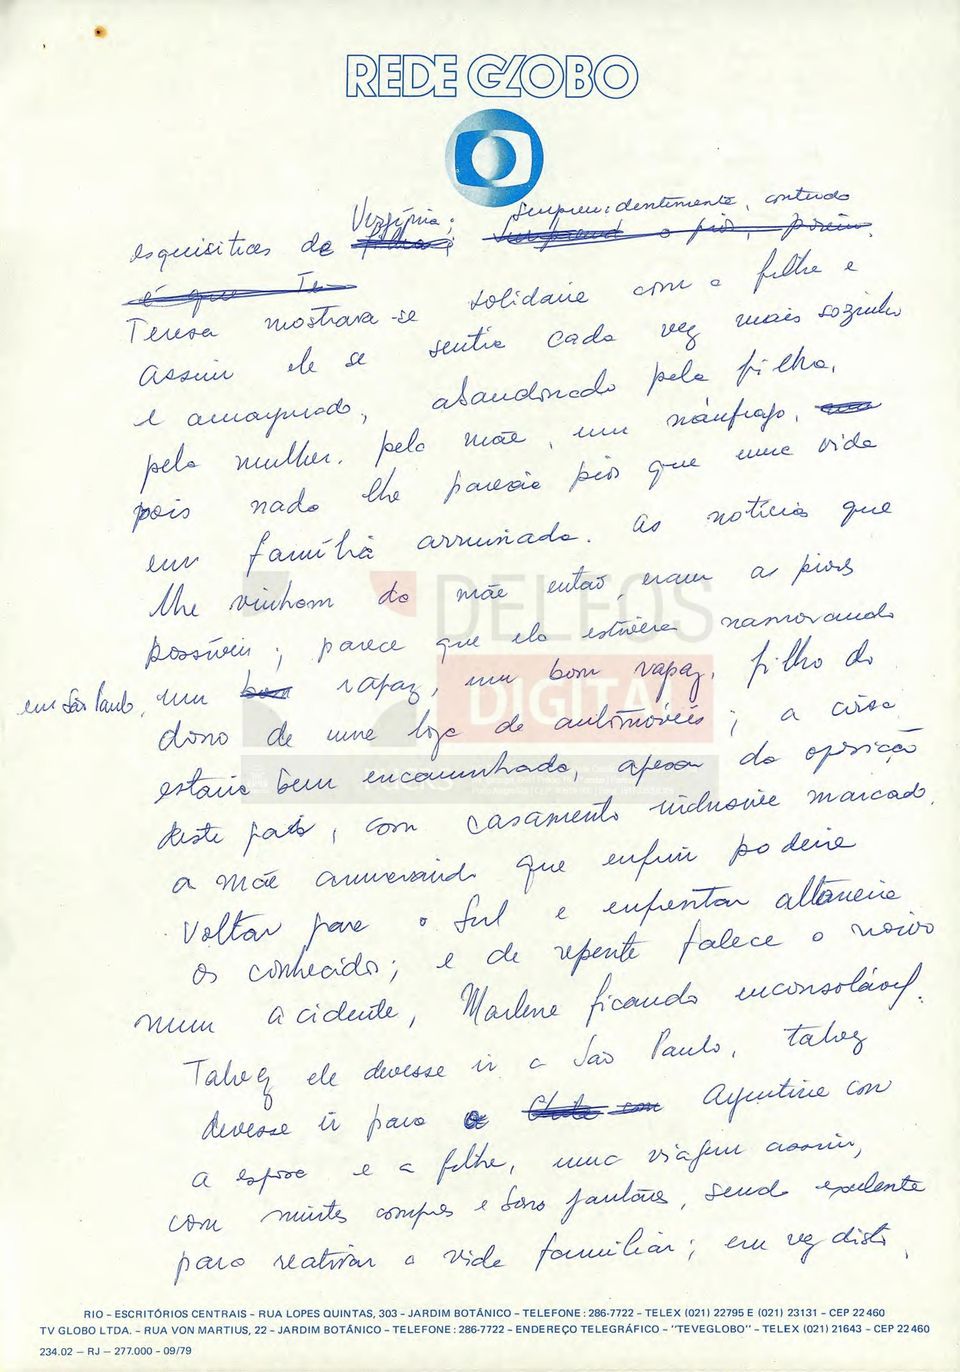 REDE GLOBO
Virgínia; Surpreendentemente, contudo
esquisitices de
é que Te
Teresa mostrava-se solidária com a filha e
assim ele se sentia cada vez mais sozinho
e amargurado, abandonado pela filha,
pela mulher, pela mãe, um náufrago,
pois nada lhe parecia pior que uma vida
em família arruinada. As notícias que
lhe vinham da mãe então, eram as piores
possíveis; parece que ela estivera namorando
em São Paulo, um bom rapaz, um bom rapaz, filho do
dono de uma loja de automóveis; a coisa
estaria bem encaminhada, apesar da oposição
deste pais, com casamento inclusive marcado,
a mãe anunciando que enfim poderia
voltar para o Sul e enfrentar altaneira
os conhecidos; e de repente falece o noivo
num acidente, Marlene ficando inconsolável.
Talvez ele devesse ir a São Paulo, talvez
devesse ir para a Argentina com
a esposa e a filha, uma viagem assim,
com muitas compras e bons jantares, sendo excelente
para reativar a vida familiar; em vez disto,
DELFOS
DIGITAL
PUCRS
RIO - ESCRITÓRIOS CENTRAIS - RUA LOPES QUINTAS, 303 - JARDIM BOTÂNICO - TELEFONE: 286-7722 - TELEX (021) 22795 E (021) 23131 - CEP 22460
TV GLOBO LTDA. - RUA VON MARTIUS, 22 - JARDIM BOTÂNICO - TELEFONE: 286-7722 - ENDEREÇO TELEGRÁFICO - "TEVEGLOBO" - TELEX (021) 21643 - CEP 22460
234.02 - RJ - 277.000 - 09/79